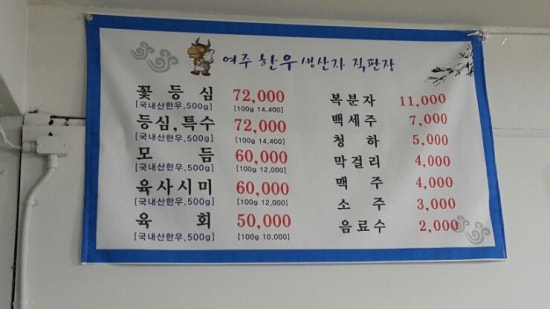 여주 한우 생산자 직판장
꽃등심 72,000
[국내산한우,500g] [100g 14,400]
등심,특수 72,000
[국내산한우,500g] [100g 14,400]
모듬 60,000
[국내산한우,500g] [100g 12,000]
육사시미 60,000
[국내산한우,500g] [100g 12,000]
육회 50,000
[국내산한우,500g] [100g 10,000]
복분자 11,000
백세주 7,000
청하 5,000
막걸리 4,000
맥주 4,000
소주 3,000
음료수 2,000